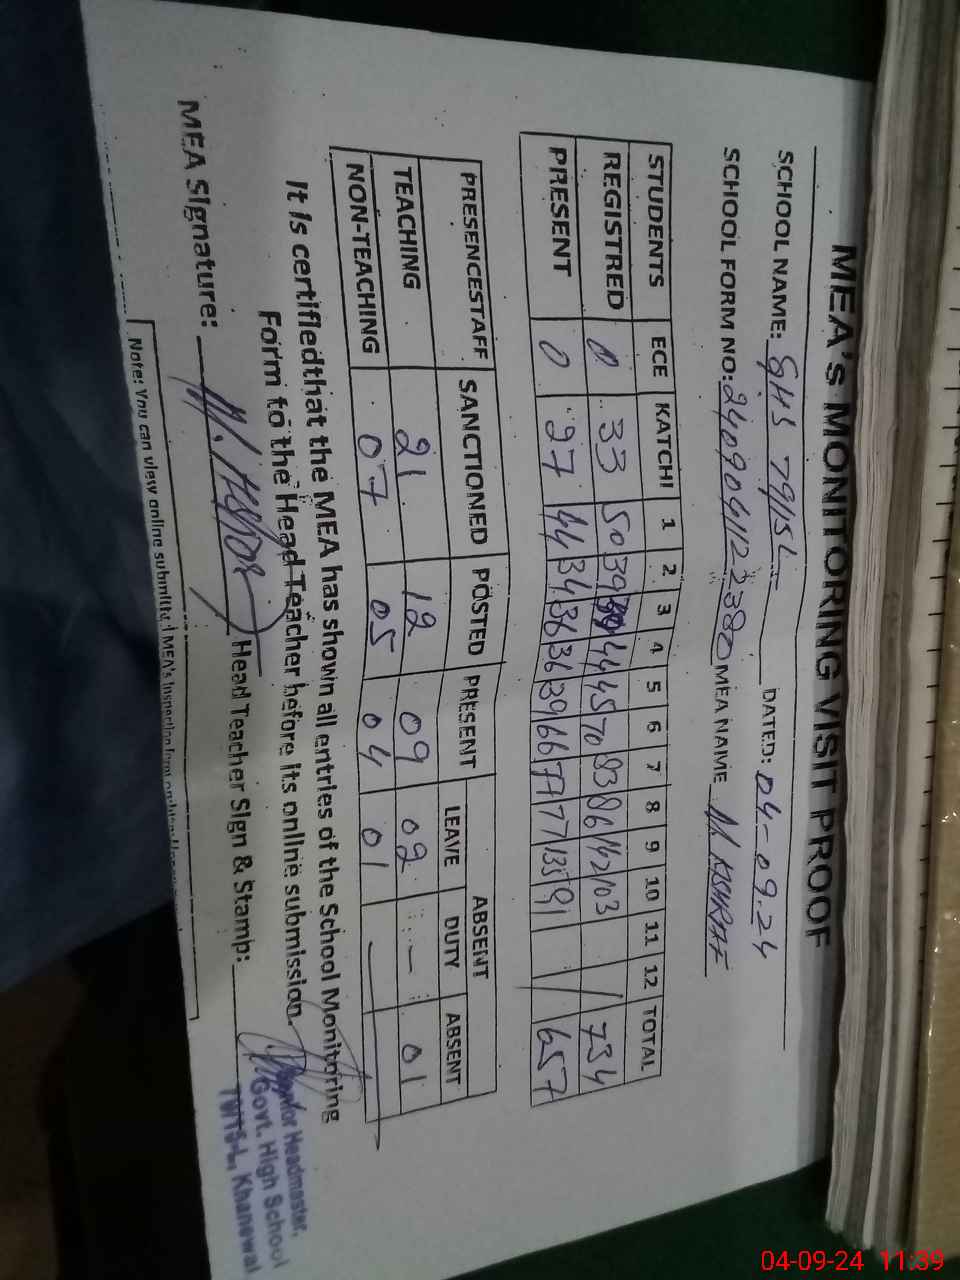 MEA'S MONITORING VISIT PROOF
SCHOOL NAME: GHS 79/15L DATED: 04-09.24
SCHOOL FORM NO: 2409041122380 MEA NAME M ASHRAF
STUDENTS ECE KATCHI 1 2 3 4 5 6 7 8 9 10 11 12 TOTAL
REGISTRED 0 33 50 39 39 44 45 70 83 86 142 103 / 734
PRESENT 0 27 44 34 36 36 39 66 77 77 91 / 657
PRESENCESTAFF SANCTIONED POSTED PRESENT ABSENT
LEAVE DUTY ABSENT
TEACHING 21 12 09 02 - 01
NON-TEACHING 07 05 04 01 —
It is certifiedthat the MEA has shown all entries of the School Monitoring
Form to the Head Teacher before its online submission.
MEA Signature: M. Ashraf Head Teacher Sign & Stamp:
Headmaster,
Govt. High School
79/15-L, Khanewal
Note: You can view online submitted MEA's Inspection form
04-09-24 11:39